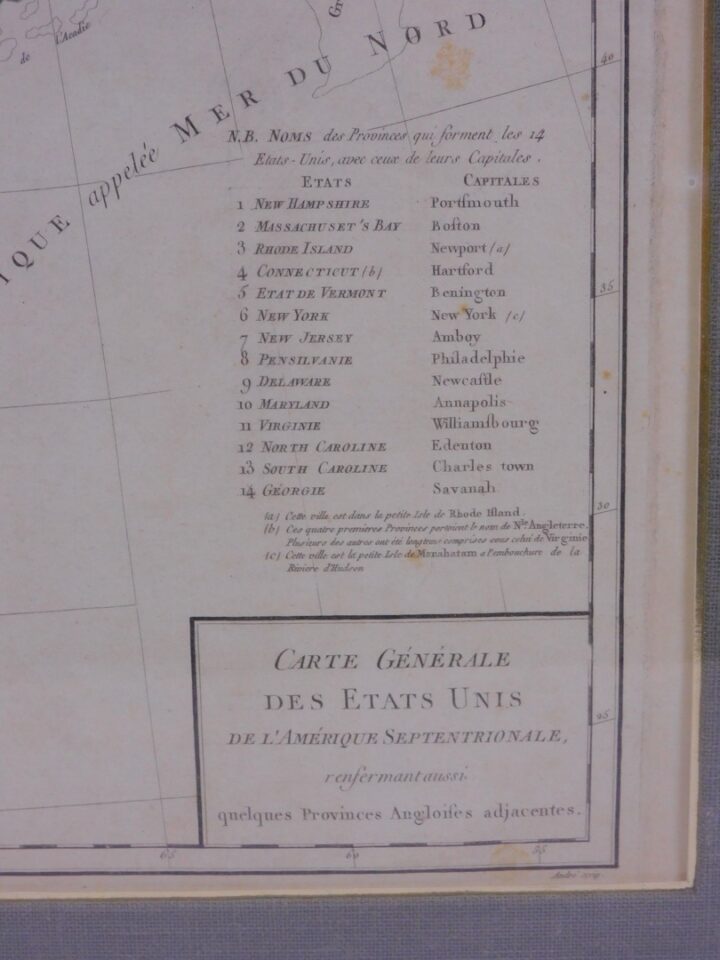 de
l'Acadie
Gr
IQUE appelée MER DU NORD
40
N.B. NOMS des Provinces qui forment les 14
Etats-Unis, avec ceux de leurs Capitales.
ETATS CAPITALES
1 NEW HAMPSHIRE Portſmouth
2 MASSACHUSET'S BAY Boſton
3 RHODE ISLAND Newport (a)
4 CONNECTICUT (b) Hartford
5 ETAT DE VERMONT Benington
6 NEW YORK New York (c)
7 NEW JERSEY Amboy
8 PENSILVANIE Philadelphie
9 DELAWARE Newcaſtle
10 MARYLAND Annapolis
11 VIRGINIE Williamſbourg
12 NORTH CAROLINE Edenton
13 SOUTH CAROLINE Charles town
14 GÉORGIE Savanah
35
30
(a) Cette ville est dans la petite Isle de Rhode Iſland.
(b) Ces quatre premieres Provinces portoient le nom de Nlle Angleterre.
Plusieurs des autres ont été longtems comprises sous celui de Virginie
(c) Cette ville est la petite Isle de Manahatam a l'embouchure de la
Riviere d'Hudson
CARTE GÉNÉRALE
DES ETATS UNIS
DE L'AMÉRIQUE SEPTENTRIONALE,
renfermant aussi
quelques Provinces Angloiſes adjacentes.
25
65 60 55
André scrip.